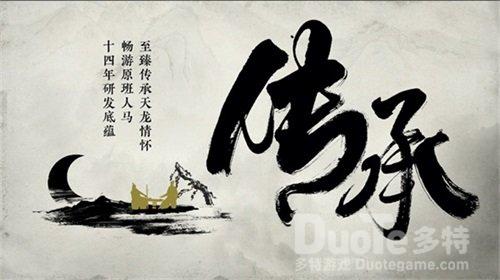 至臻传承天龙情怀
畅游原班人马
十四年研发底蕴
传承
DuoTe多特
多特游戏 Duotegame.com